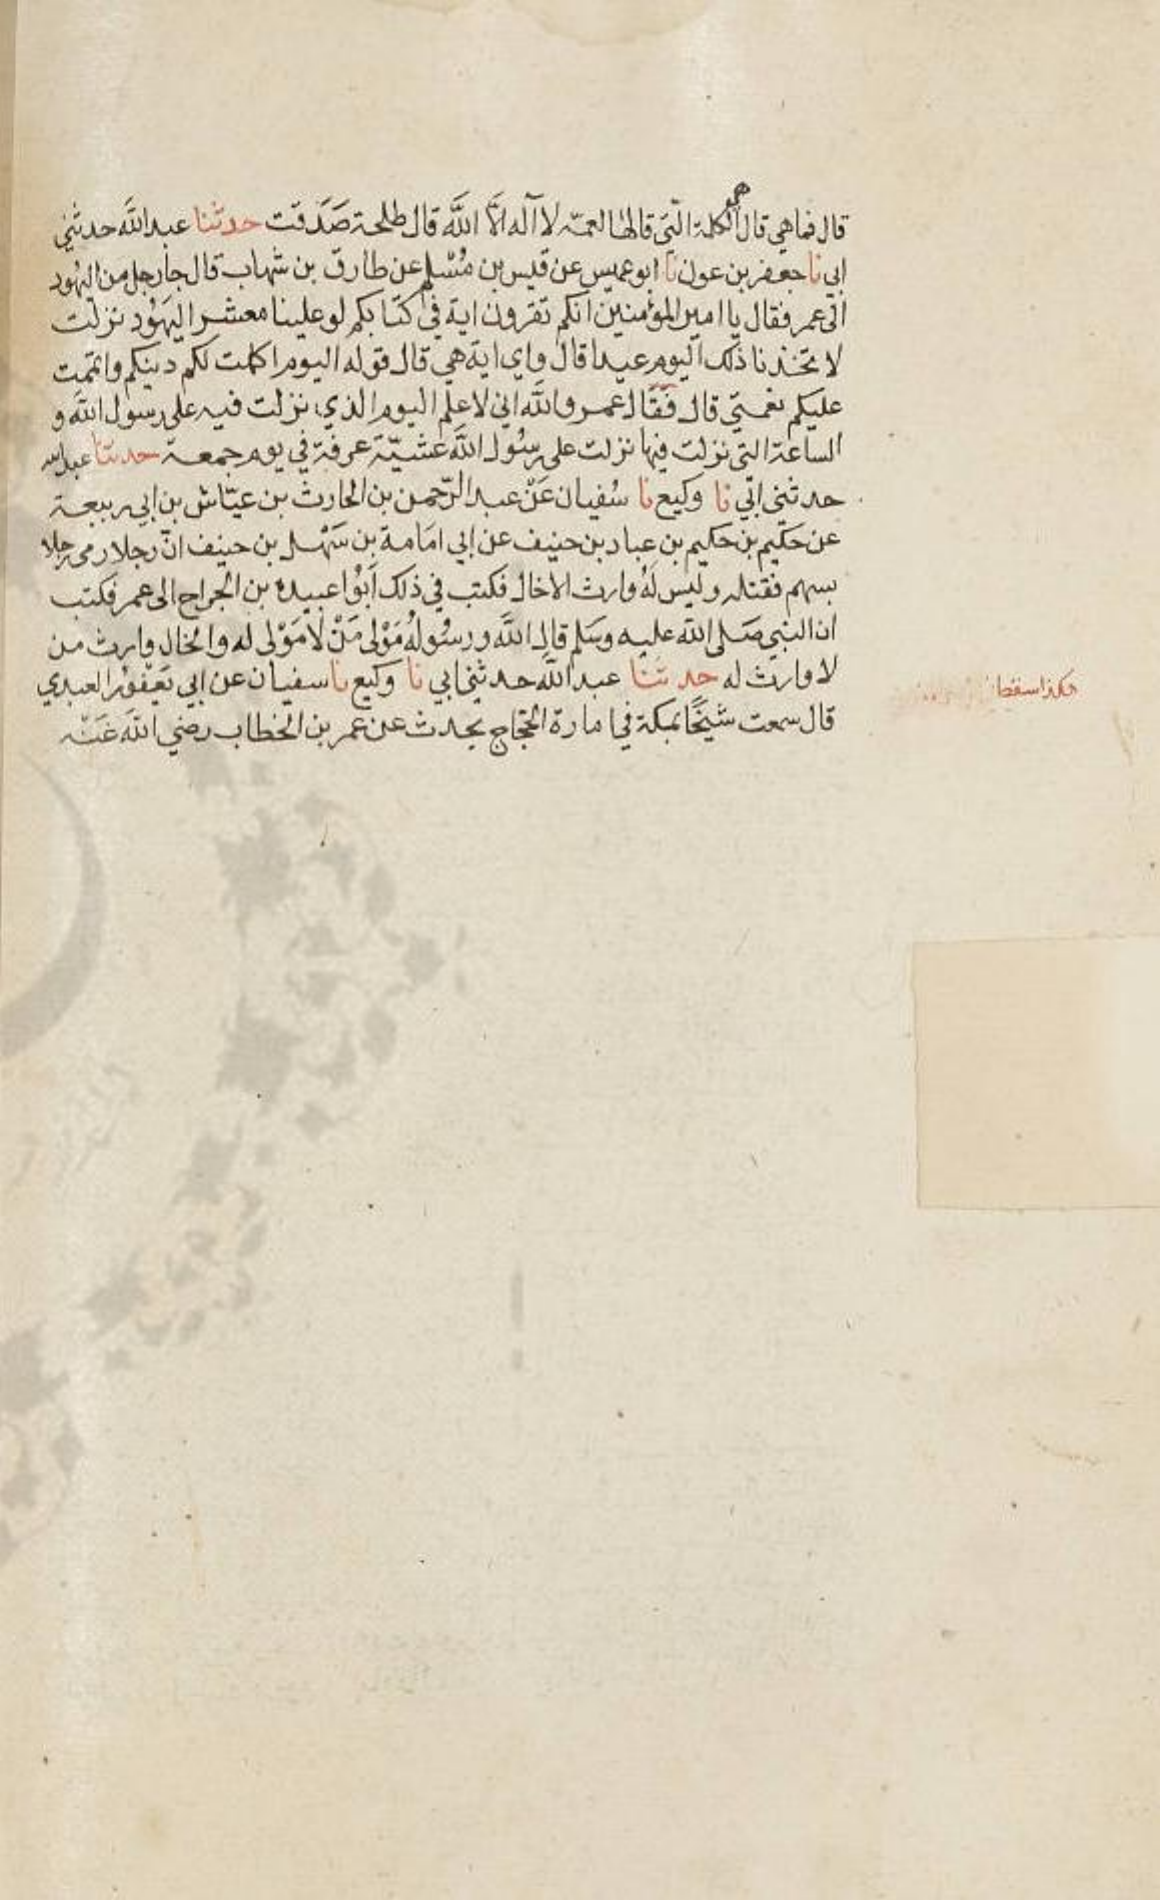 قال فما هي قال هي الكلمة التي قالها لعمه لا آله الا الله قال طلحة صدقت حدثنا عبد الله حدثني
ابي نا جعفر بن عون نا ابو عميس عن قيس بن مسلم عن طارق بن شهاب قال جا رجل من اليهود
الى عمر فقال يا امير المؤمنين انكم تقرون اية في كتابكم لو علينا معشر اليهود نزلت
لاتخذنا ذلك اليوم عيدا قال واي اية هي قال قوله اليوم اكملت لكم دينكم واتممت
عليكم نعمتي قال فقال عمر والله اني لاعلم اليوم الذي نزلت فيه على رسول الله و
الساعة التي نزلت فيها نزلت على رسول الله عشية عرفة في يوم جمعة حدثنا عبد الله
حدثني ابي نا وكيع نا سفيان عن عبد الرحمن بن الحارث بن عياش بن ابي ربيعة
عن حكيم بن حكيم بن عباد بن حنيف عن ابي امامة بن سهل بن حنيف ان رجلا رمى رجلا
بسهم فقتله وليس له وارث الا خال فكتب في ذلك ابوا عبيدة بن الجراح الى عمر فكتب
ان النبي صلى الله عليه وسلم قال الله ورسوله مولى من لا مولى له والخال وارث من
لا وارث له حدثنا عبد الله حدثني ابي نا وكيع نا سفيان عن ابي يعفور العبدي
قال سمعت شيخا بمكة في امارة الحجاج يحدث عن عمر بن الخطاب رضي الله عنه
هكذا سقط